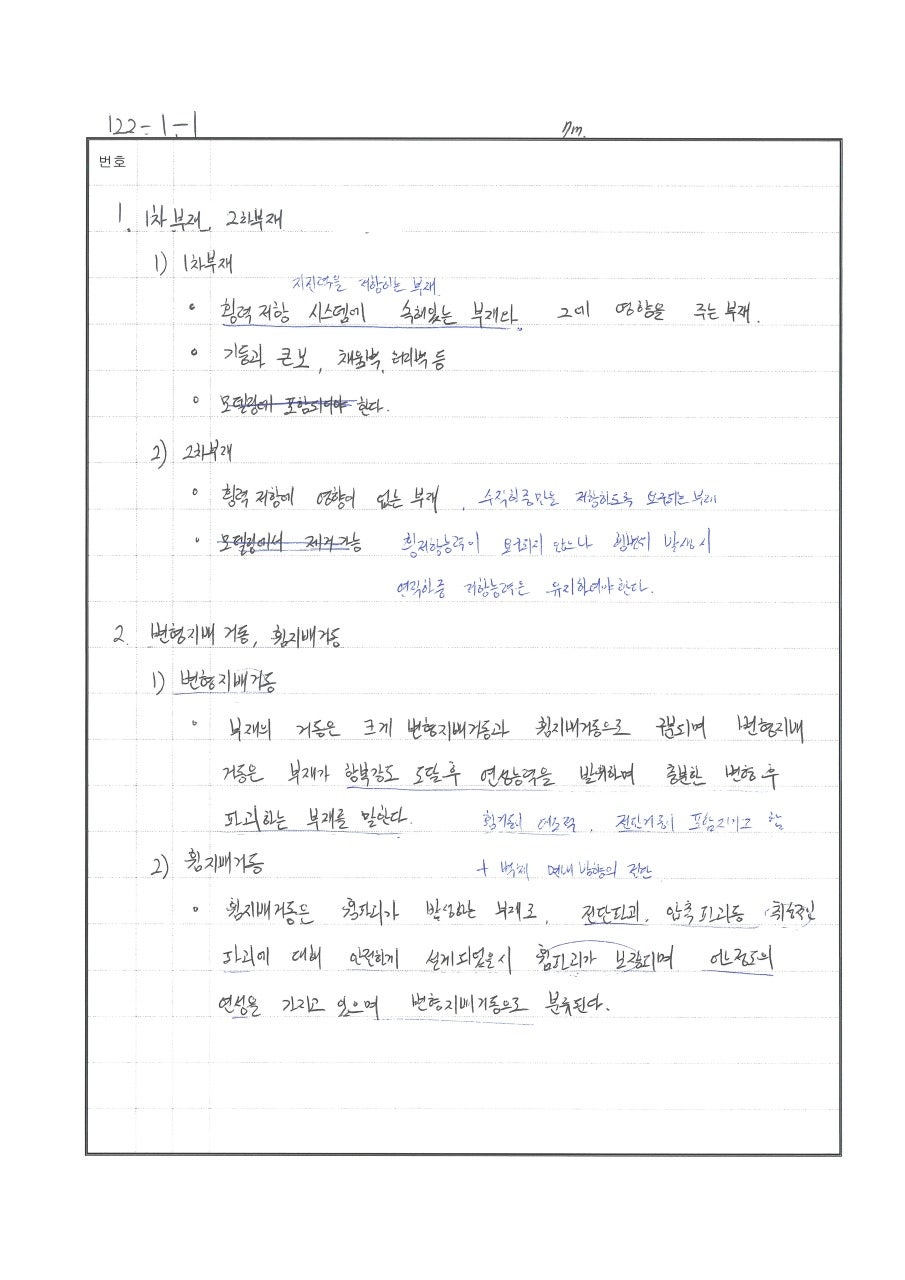 122-1-1
7m.
번호
1. 1차부재, 2차부재
1) 1차부재
지진력을 저항하는 부재
• 횡력저항 시스템에 속해있는 부재와, 그에 영향을 주는 부재.
• 기둥과 큰보, 채움벽, 허리벽 등
• 모델링에 포함되어야 한다.
2) 2차부재
• 횡력저항에 영향이 없는 부재. 수직하중만을 저항하도록 요구되는 부재
• 모델링에서 제거가능 횡저항능력이 요구되지 않으나 횡변위 발생시
연직하중 저항능력은 유지하여야한다.
2. 변형지배 거동, 휨지배거동
1) 변형지배거동
• 부재의 거동은 크게 변형지배거동과 휨지배거동으로 구분되며 변형지배
거동은 부재가 항복강도 도달후 연성능력을 발휘하며 충분한 변형 후
파괴하는 부재를 말한다. 전단거동이 포함되기고 함
2) 휨지배거동 + 벽체 면내방향의 전단
• 휨지배거동은 휨파괴가 발생하는 부재로, 전단파괴, 압축파괴등 취성적인
파괴에 대해 안전하게 설계되었을시 휨파괴가 보장되며 어느정도의
연성을 가지고 있으며 변형지배거동으로 분류된다.